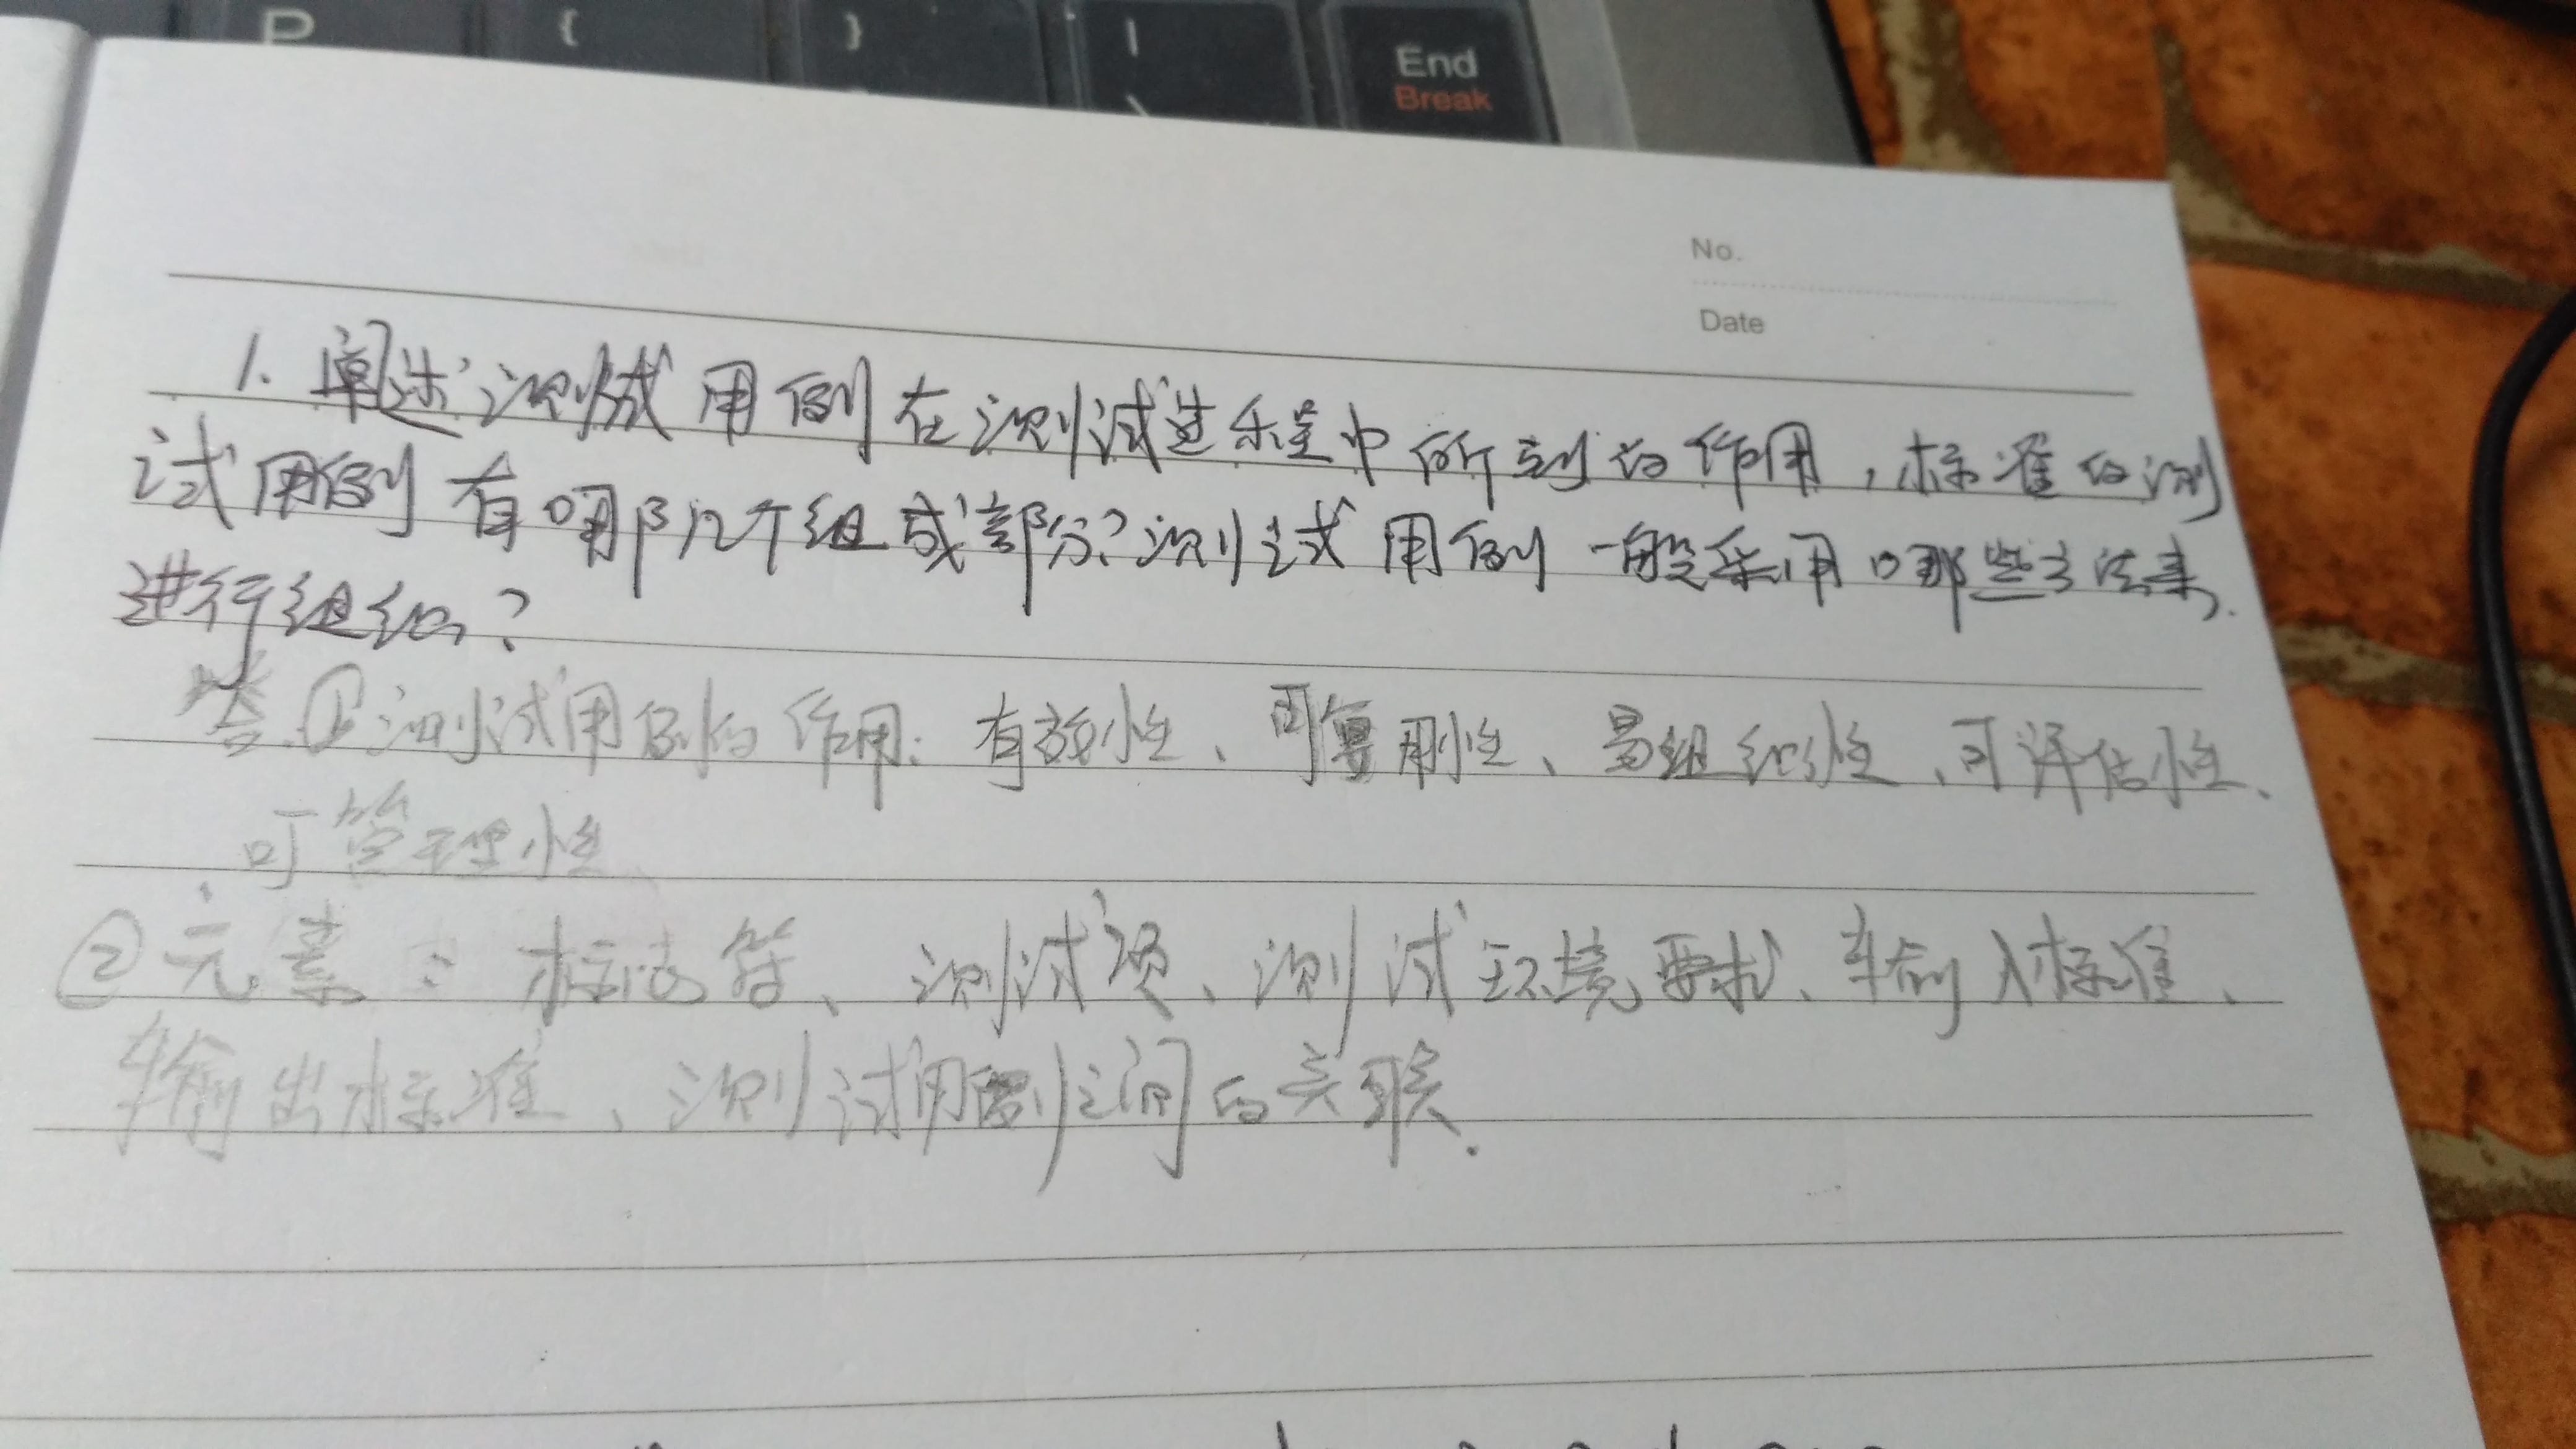 P { } | \ End
Break
No.
Date
1. 阐述测试用例在测试过程中所到的作用，标准的测
试用例有哪几个组成部分?测试用例一般采用哪些方法来
进行组织?
答.①测试用例的作用: 有效性、可复用性、易组织性、可评估性、
可管理性
②元素: 标志符、测试项、测试环境要求、输入标准、
输出标准、测试用例之间的关联.